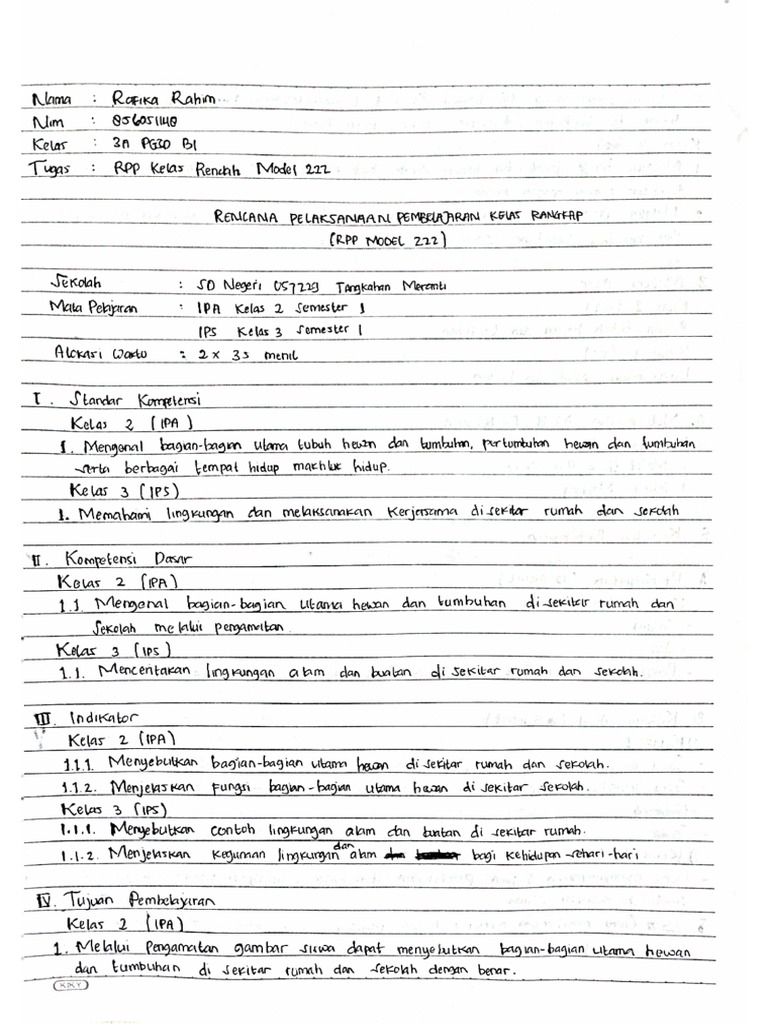 Nama : Rafika Rahim
Nim : 856051148
Kelas : 3A PGSD BI
Tugas : RPP Kelas Rendah Model 222
RENCANA PELAKSANAAN PEMBELAJARAN KELAS RANGKAP
(RPP MODEL 222)
Sekolah : SD Negeri 057229 Tangkahan Meranti
Mata Pelajaran : IPA Kelas 2 Semester 1
IPS Kelas 3 Semester 1
Alokasi Waktu : 2 x 35 menit
I. Standar Kompetensi
Kelas 2 (IPA)
1. Mengenal bagian-bagian utama tubuh hewan dan tumbuhan, pertumbuhan hewan dan tumbuhan
serta berbagai tempat hidup makhluk hidup.
Kelas 3 (IPS)
1. Memahami lingkungan dan melaksanakan Kerjersama disekitar rumah dan sekolah
II. Kompetensi Dasar
Kelas 2 (IPA)
1.1. Mengenal bagian-bagian utama hewan dan tumbuhan disekitar rumah dan
Sekolah melalui pengamatan.
Kelas 3 (IPS)
1.1. Menceritakan lingkungan alam dan buatan di sekitar rumah dan sekolah.
III. Indikator
Kelas 2 (IPA)
1.1.1. Menyebutkan bagian-bagian utama hewan di sekitar rumah dan sekolah.
1.1.2. Menjelaskan fungsi bagian-bagian utama hewan di sekitar sekolah.
Kelas 3 (IPS)
1.1.1. Menyebutkan contoh lingkungan alam dan buatan di sekitar rumah.
1.1.2. Menjelaskan kegunaan lingkungan dan alam bagi kehidupan sehari-hari
IV. Tujuan Pembelajaran
Kelas 2 (IPA)
1. Melalui pengamatan gambar siswa dapat menyebutkan bagian-bagian utama hewan
dan tumbuhan di sekitar rumah dan sekolah dengan benar.
KIKY